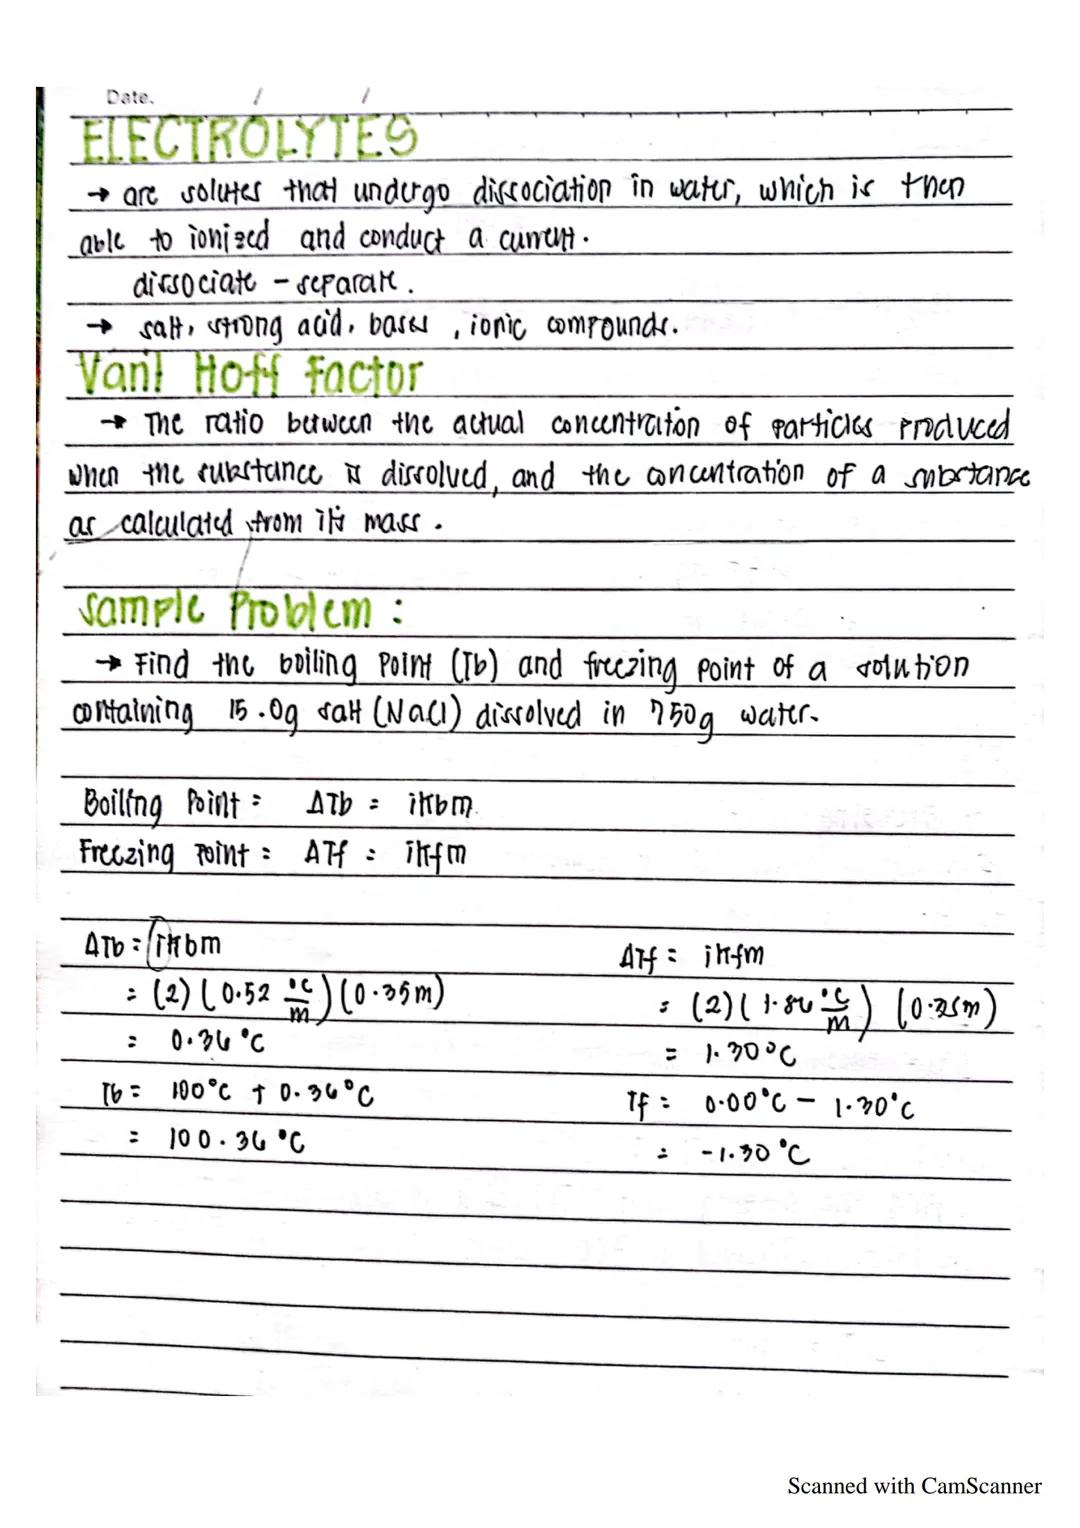 Date. / /
ELECTROLYTES
→ are solutes that undergo dissociation in water, which is then
able to ionized and conduct a current.
dissociate - separate.
→ salt, strong acid, bases, ionic compounds.
Vant Hoff Factor
→ The ratio between the actual concentration of particles produced
when the substance is dissolved, and the concentration of a substance
as calculated from its mass.
Sample Problem :
→ Find the boiling point (Tb) and freezing point of a solution
containing 15.0g salt (NaCl) dissolved in 750g water.
Boiling Point = ΔTb = iKbm
Freezing Point = ΔTf = iKfm
ΔTb = iKbm
= (2) (0.52 °C/m) (0.35m)
= 0.36 °C
Tb = 100°C + 0.36°C
= 100.36 °C
ΔTf = iKfm
= (2) (1.86 °C/m) (0.35m)
= 1.30°C
Tf = 0.00°C - 1.30°C
= -1.30 °C
Scanned with CamScanner